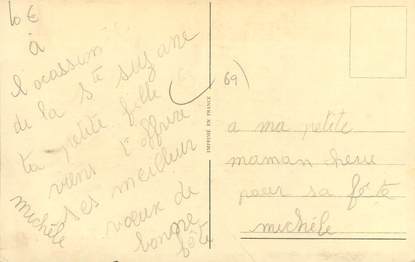 10 €
à
l'ocassion
de la Ste suzane
ta petite fille
viens t'offrire
ses meilleur
voeux de
bonne
fête
michèle
69)
IMPRIMÉ EN FRANCE
a ma petite
maman cherie
pour sa fête
michèle